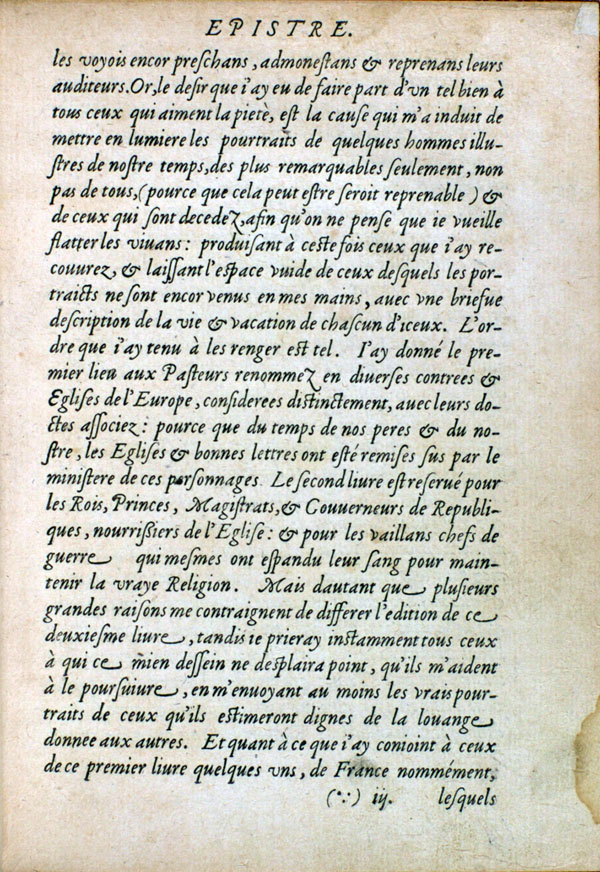 EPISTRE.
les voyois encor preschans, admonestans & reprenans leurs
auditeurs. Or, le desir que i'ay eu de faire part d'vn tel bien à
tous ceux qui aiment la pietè, est la cause qui m'a induit de
mettre en lumiere les pourtraits de quelques hommes illu-
stres de nostre temps, des plus remarquables seulement, non
pas de tous, (pource que cela peut estre seroit reprenable) &
de ceux qui sont decedez, afin qu'on ne pense que ie vueille
flatter les viuans: produisant à ceste fois ceux que i'ay re-
couurez, & laissant l'espace vuide de ceux desquels les por-
traicts ne sont encor venus en mes mains, auec vne briefue
description de la vie & vacation de chascun d'iceux. L'or-
dre que i'ay tenu à les renger est tel. I'ay donné le pre-
mier lieu aux Pasteurs renommez en diuerses contrees &
Eglises de l'Europe, considerees distinctement, auec leurs do-
ctes associez: pource que du temps de nos peres & du no-
stre, les Eglises & bonnes lettres ont esté remises sus par le
ministere de ces personnages. Le second liure est reserué pour
les Rois, Princes, Magistrats, & Gouuerneurs de Republi-
ques, nourrissiers de l'Eglise: & pour les vaillans chefs de
guerre qui mesmes ont espandu leur sang pour main-
tenir la vraye Religion. Mais dautant que plusieurs
grandes raisons me contraignent de differer l'edition de ce
deuxiesme liure, tandis ie prieray instamment tous ceux
à qui ce mien dessein ne desplaira point, qu'ils m'aident
à le poursuiure, en m'enuoyant au moins les vrais pour-
traits de ceux qu'ils estimeront dignes de la louange
donnee aux autres. Et quant à ce que i'ay conioint à ceux
de ce premier liure quelques vns, de France nommément,
(*∵) iij. lesquels